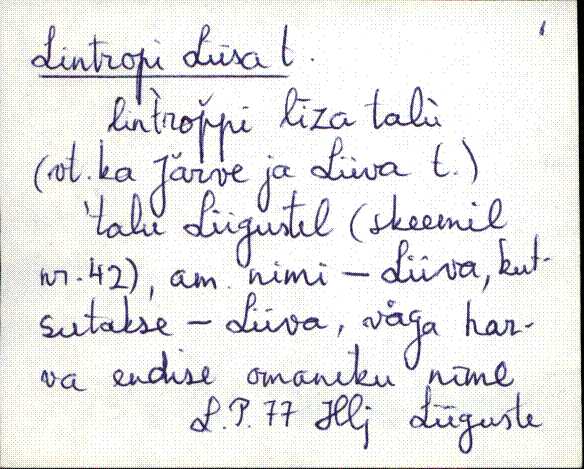 Lintropi Liisa t.
lintroppi līza talu
(vt. ka Järve ja Liiva t.)
'talu Liigustel (skeemil
nr. 42), am. nimi – Liiva, kut-
sutakse – Liiva, väga har-
va endise omaniku nime
L.P. 77 Hlj Liiguste